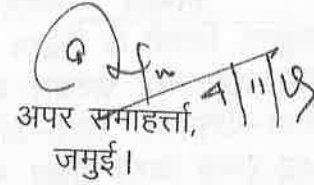 4/11/19
अपर समाहर्त्ता,
जमुई।